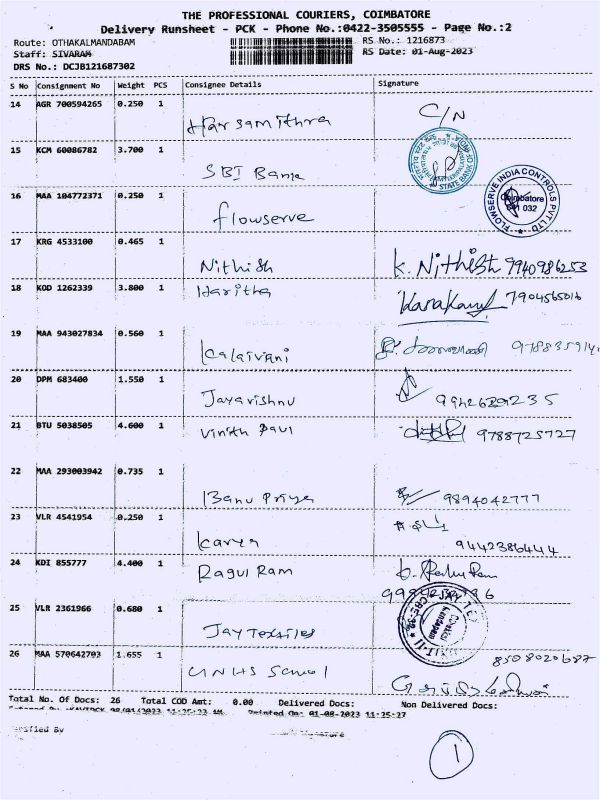 THE PROFESSIONAL COURIERS, COIMBATORE
Delivery Runsheet - PCK - Phone No.:0422-3505555 - Page No.:2
Route: OTHAKALMANDABAM RS No.: 1216873
Staff: SIVARAM RS Date: 01-Aug-2023
DRS No.: DCJB121687302
S No Consignment No Weight PCS Consignee Details Signature
14 AGR 700594265 0.250 1 Harsamithra C/N
15 KCM 60086782 3.700 1 SBI STATE BANK
16 MAA 104772371 0.250 1 flowserve FLOWSERVE INDIA CONTROLS PVT LTD Coimbatore 641 032
17 KRG 4533100 0.465 1 Nithish K. Nithish 9940986253
18 KOD 1262339 3.800 1 Haritha 7904565016
19 MAA 943027834 0.560 1 Kalaivani 978835914
20 DPM 683400 1.550 1 Jayavishnu
21 BTU 5038505 4.600 1 Vinith Paul 9788725727
22 MAA 293003942 0.735 1 Banu Priya 9894042777
23 VLR 4541954 0.250 1 9442386444
24 KDI 855777 4.400 1 Ragul Ram
25 VLR 2361966 0.680 1 Jay Textiles
26 MAA 570642703 1.655 1 GNHS School 8508020687
Total No. Of Docs: 26 Total COD Amt: 0.00 Delivered Docs: Non Delivered Docs:
Printed On: 01-08-2023 11:25:27
1